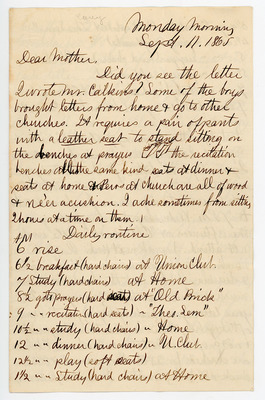 Monday Morning
Sept. 11. 1865
Dear Mother.
Did you see the letter
I wrote Mr. Calkins? Some of the boys
brought letters from home & go to other
churches. It requires a pair of pants
with a leather seat to stand sitting on
the benches at prayers the recitation
benches all the same kind seats at dinner &
seats at home & Pews at church are all of wood
& ne'er a cushion. I ache sometimes from sitting
2 hours at a time on them!
Daily routine
AM
6 rise
6½ breakfast (hard chairs) at Union Club.
7 Study (hard chairs) at Home
8½ go to prayer (hard seats) at "Old Brick"
9 " recitation (hard seats) " Theo. Sem"
10½ " study (hard chairs) " Home
12 " dinner (hard chairs) " U. Club
12½ " play (soft seats)
1½ " Study (hard chairs) at Home